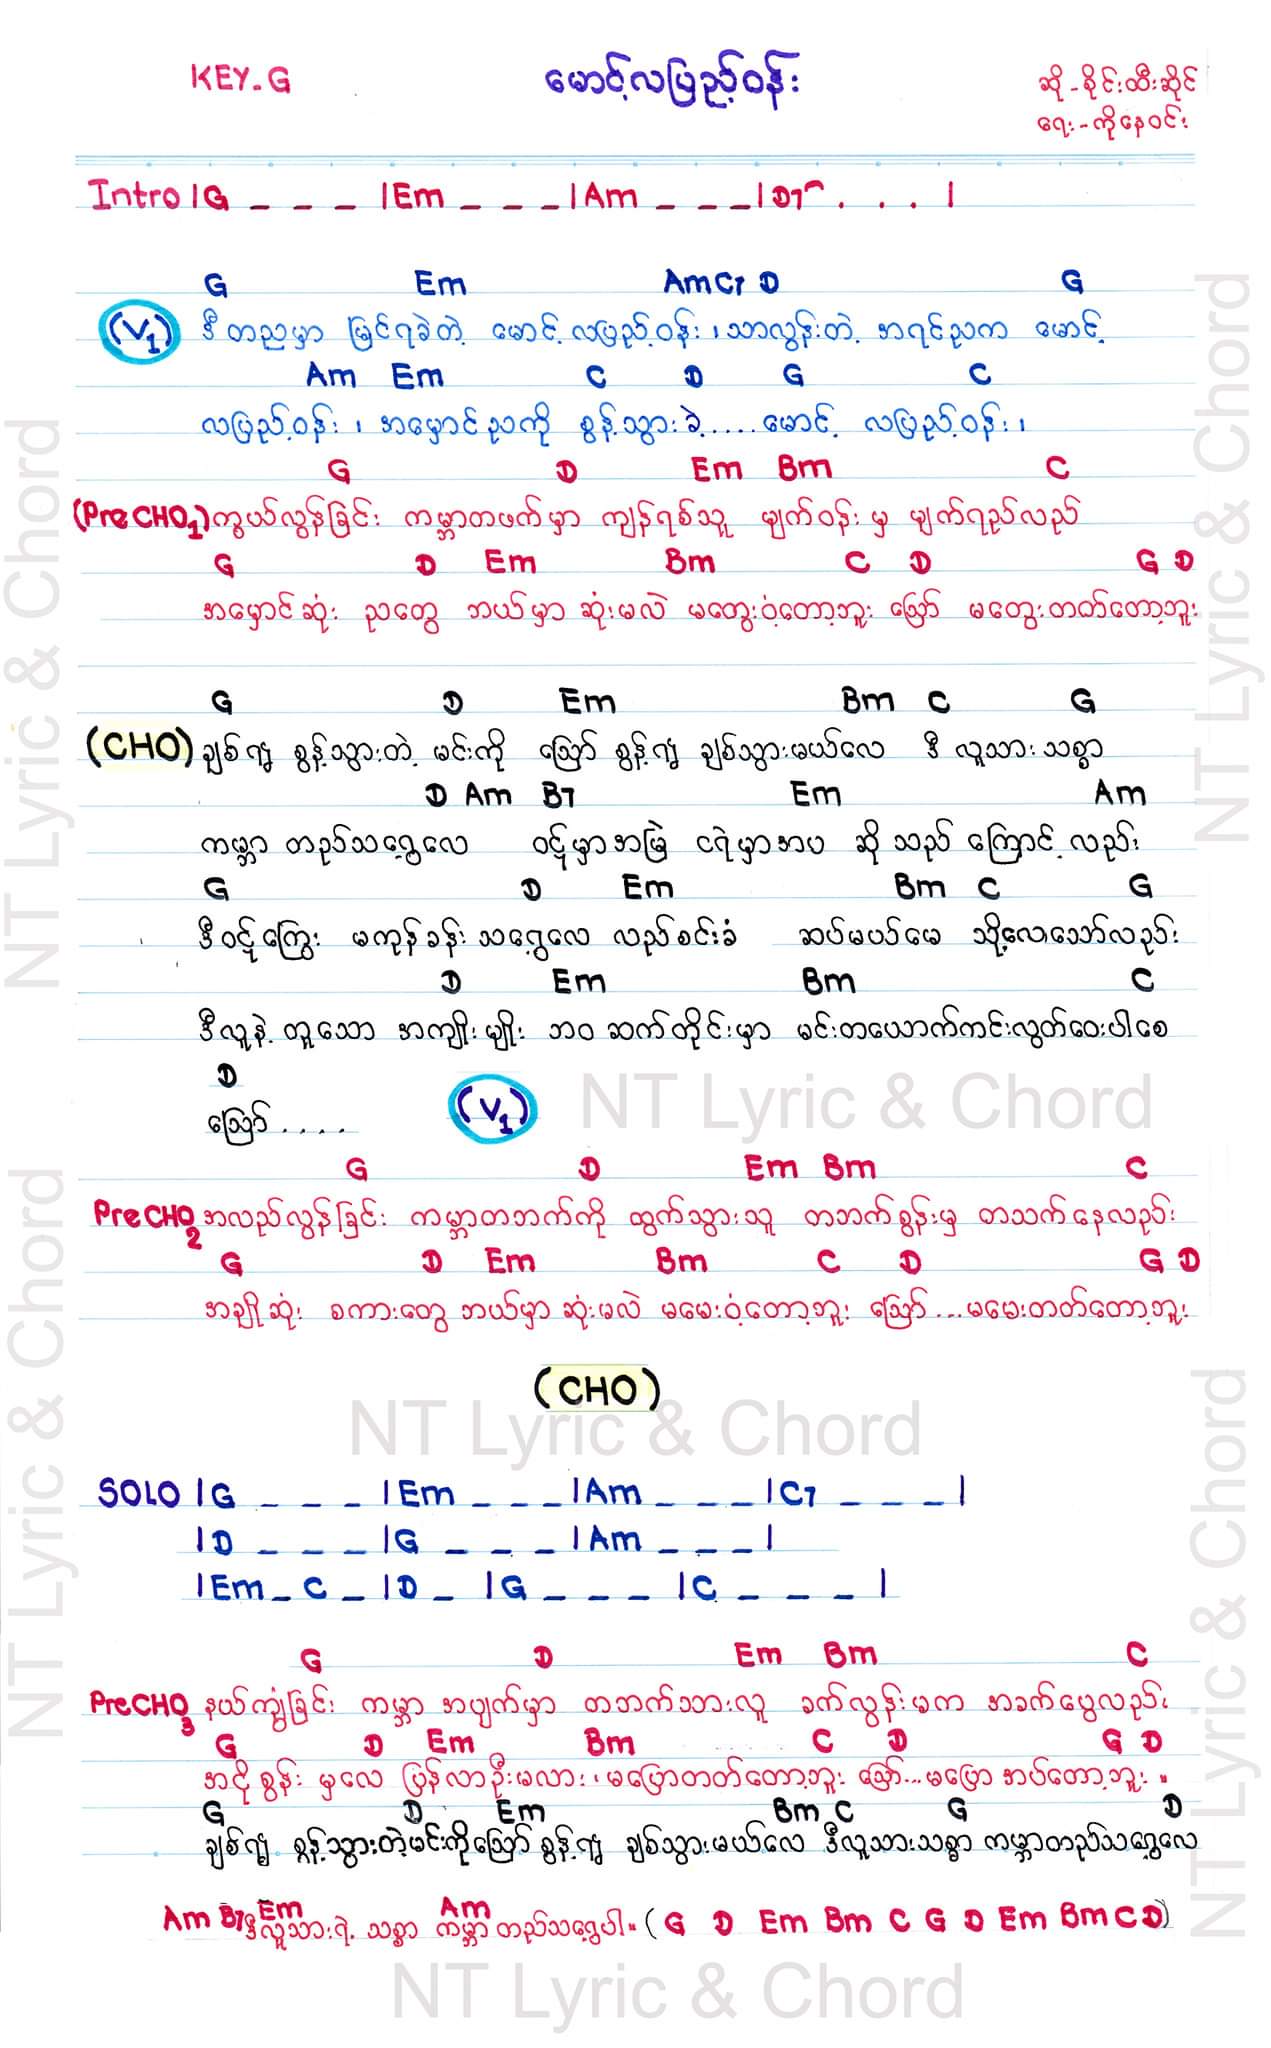 KEY-G
မောင့်လပြည့်ဝန်း
ဆို - စိုင်းထီးဆိုင်
ရေး - ကိုနေဝင်း
Intro |G _ _ _ |Em _ _ _ |Am _ _ _ |D7 . . . |
G Em Am C7 D G
(V1) ဒီတညမှာ မြင်ရခဲတဲ့ မောင့်လပြည့်ဝန်း ၊ သာလွန်းတဲ့ အရင်ညက မောင့်
Am Em C D G C
လပြည့်ဝန်း ၊ အမှောင်ညကို စွန့်သွားခဲ့..... မောင့် လပြည့်ဝန်း ၊
G D Em Bm C
(Pre CHO1) ကွယ်လွန်ခြင်း ကမ္ဘာတဖက်မှာ ကျန်ရစ်သူ မျက်ဝန်းမှ မျက်ရည်လည်
G D Em Bm C D G D
အမှောင်ဆုံး ညတွေ ဘယ်မှာ ဆုံးမလဲ မတွေးဝံ့တော့ဘူး ဪ မတွေးတတ်တော့ဘူး
G D Em Bm C G
(CHO) ချစ်၍ စွန့်သွားတဲ့ မင်းကို ဪ စွန့်၍ ချစ်သွားမယ်လေ ဒီ လူသားသစ္စာ
D Am B7 Em Am
ကမ္ဘာ တည်သရွေ့လေ ဝဋ်မှာအမြဲ ငရဲမှာအပ ဆိုသည်ကြောင့်လည်း
G D Em Bm C G
ဒီဝဋ်ကြွေး မကုန်ခန်းသရွေ့လေ လည်စင်းခံ ဆပ်မယ်မေ သို့လေသော်လည်း
D Em Bm C
ဒီလူနဲ့တူသော အကျိုးမျိုး ဘဝဆက်တိုင်းမှာ မင်းတယောက်ကင်းလွတ်ဝေးပါစေ
D
ဪ . . . . (V1)
NT Lyric & Chord
G D Em Bm C
Pre CHO2 အလည်လွန်ခြင်း ကမ္ဘာတဘက်ကို ထွက်သွားသူ တဘက်စွန်းမှ တသက်နေလည်း
G D Em Bm C D G D
အချိုဆုံး စကားတွေ ဘယ်မှာဆုံးမလဲ မမေးဝံ့တော့ဘူး ဪ...မမေးတတ်တော့ဘူး
(CHO)
NT Lyric & Chord
SOLO |G _ _ _ |Em _ _ _ |Am _ _ _ |C7 _ _ _ |
|D _ _ _ |G _ _ _ |Am _ _ _ |
|Em _ C _ |D _ |G _ _ _ |C _ _ _ |
G D Em Bm C
Pre CHO3 နယ်ကျွံခြင်း ကမ္ဘာ အပျက်မှာ တဘက်သားလူ ခက်လွန်းမက အခက်ပွေလည်း
G D Em Bm C D G D
အငိုစွန်း မှလေ ပြန်လာဦးမလား ၊ မပြောတတ်တော့ဘူး ဪ...မပြောအပ်တော့ဘူး ။
G D Em Bm C G D
ချစ်၍ စွန့်သွားတဲ့မင်းကိုဪ စွန့်၍ ချစ်သွားမယ်လေ ဒီလူသားသစ္စာ ကမ္ဘာတည်သရွေ့လေ
Am B7 Em Am
ဒီလူသားရဲ့ သစ္စာ ကမ္ဘာတည်သရွေ့ပါ ။ ( G D Em Bm C G D Em Bm C D )
NT Lyric & Chord
NT Lyric & Chord
NT Lyric & Chord
NT Lyric & Chord
NT Lyric & Chord